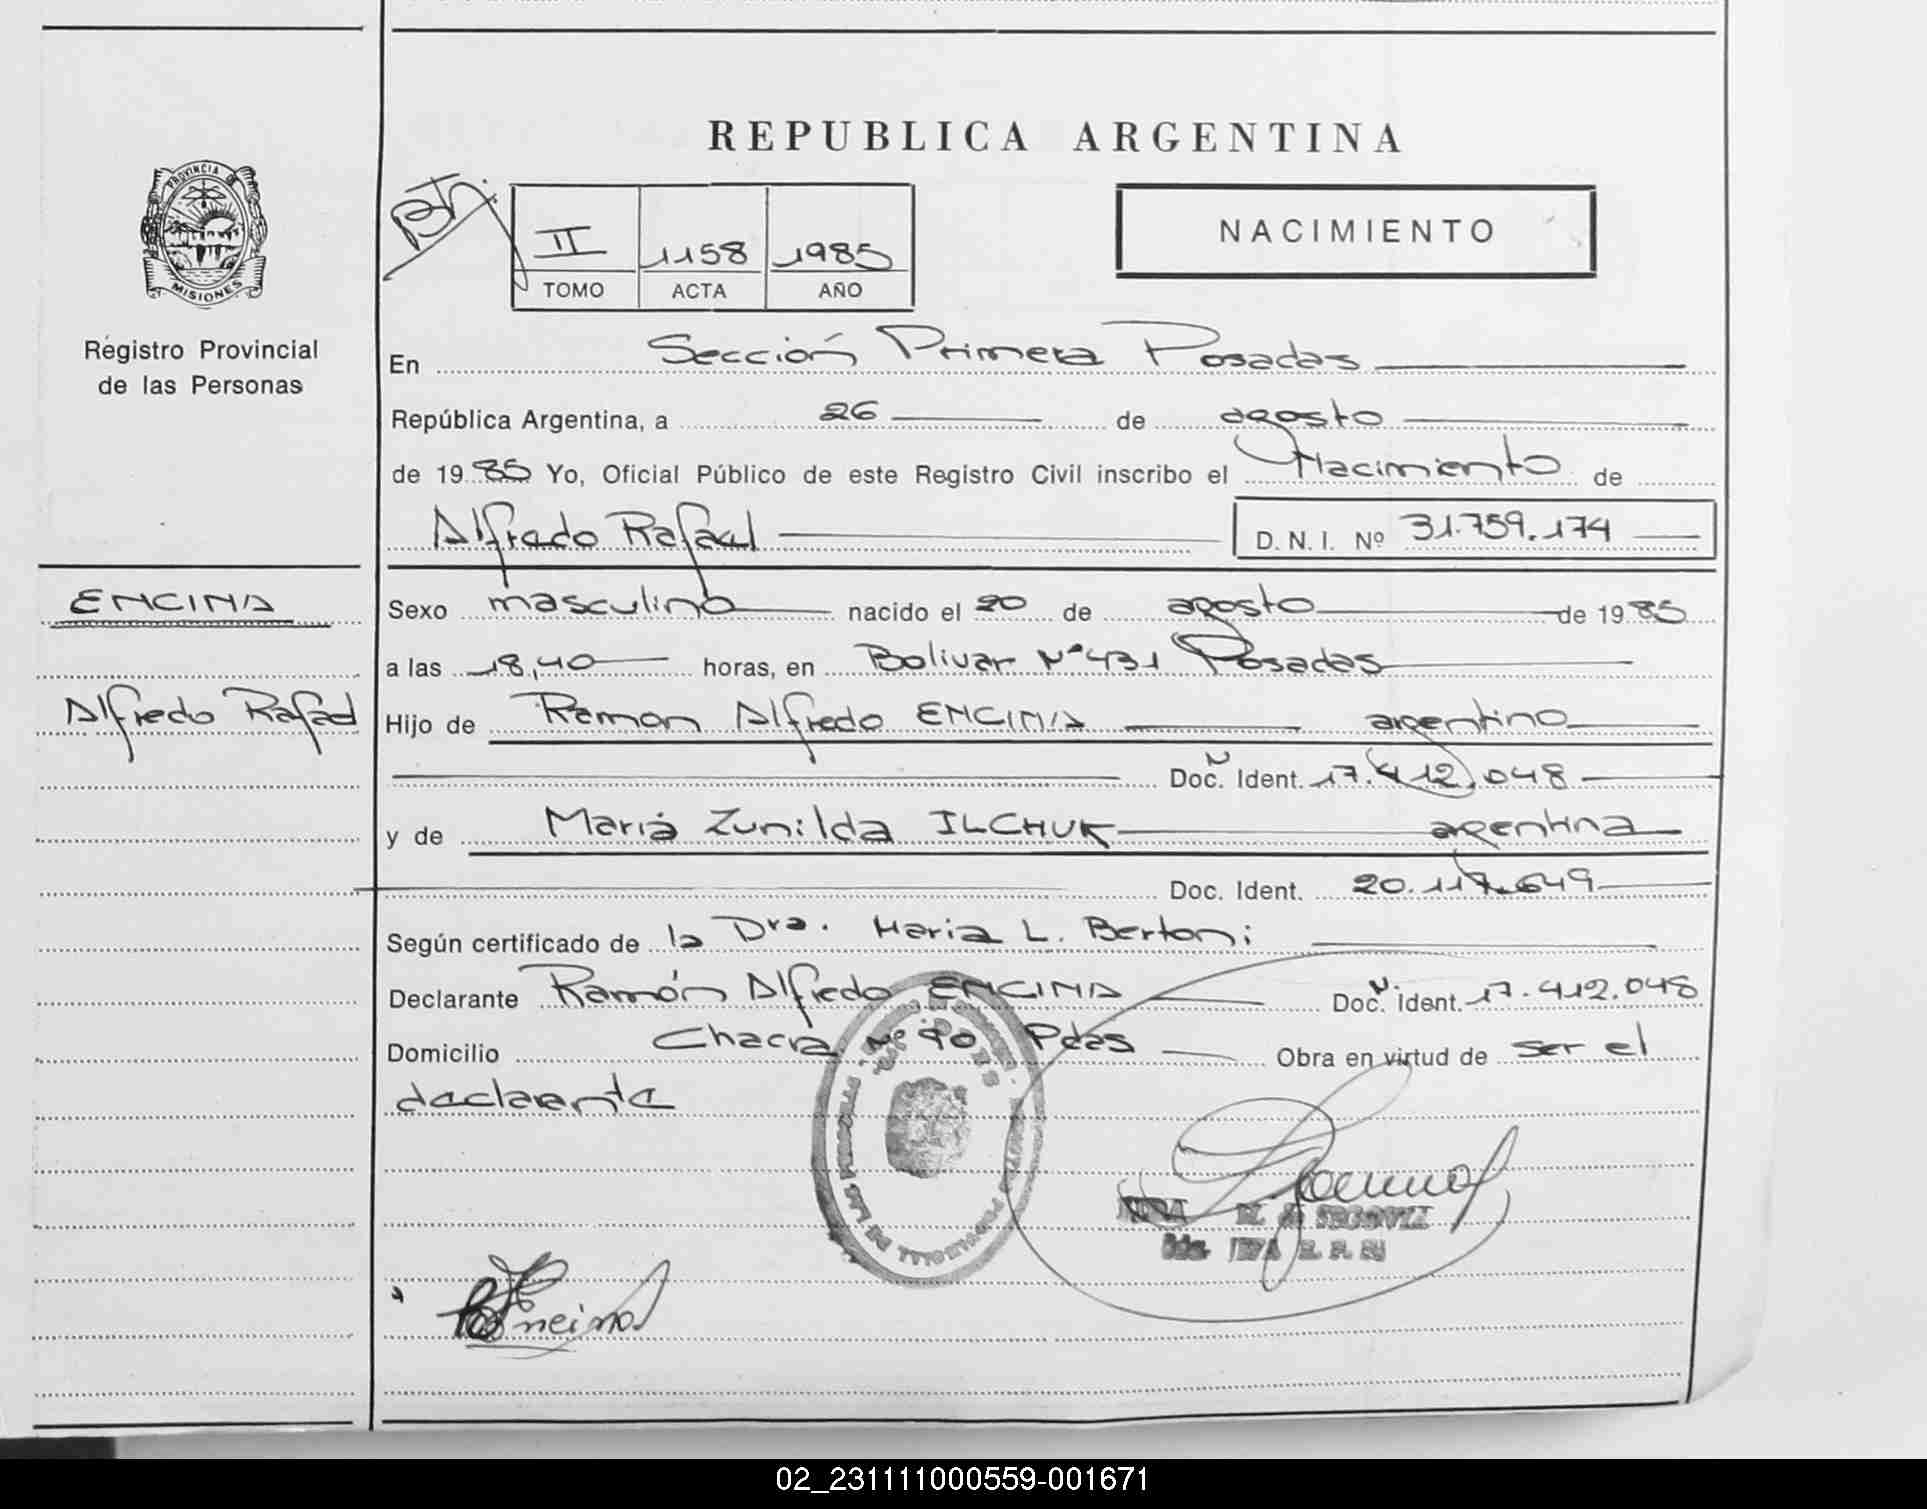 REPUBLICA ARGENTINA
PROVINCIA DE
MISIONES
Registro Provincial
de las Personas
II 1158 1985
TOMO ACTA AÑO
NACIMIENTO
En Sección Primera Posadas
República Argentina, a 26 de agosto
de 1985 Yo, Oficial Público de este Registro Civil inscribo el Nacimiento de
Alfredo Rafael D.N.I. Nº 31.759.174
ENCINA
Alfredo Rafael
Sexo masculino nacido el 20 de agosto de 1985
a las 18,40 horas, en Bolivar Nº 431 Posadas
Hijo de Ramon Alfredo ENCINA argentino
Doc. Ident. 17.412.048
y de Maria Zunilda ILCHUK argentina
Doc. Ident. 20.117.649
Según certificado de la Dra. Maria L. Bertoni
Declarante Ramón Alfredo ENCINA Doc. ident. 17.412.048
Domicilio Chacra Nº 90 Pdas Obra en virtud de ser el
declarante
SEGOVIA
Encina
02_231111000559-001671